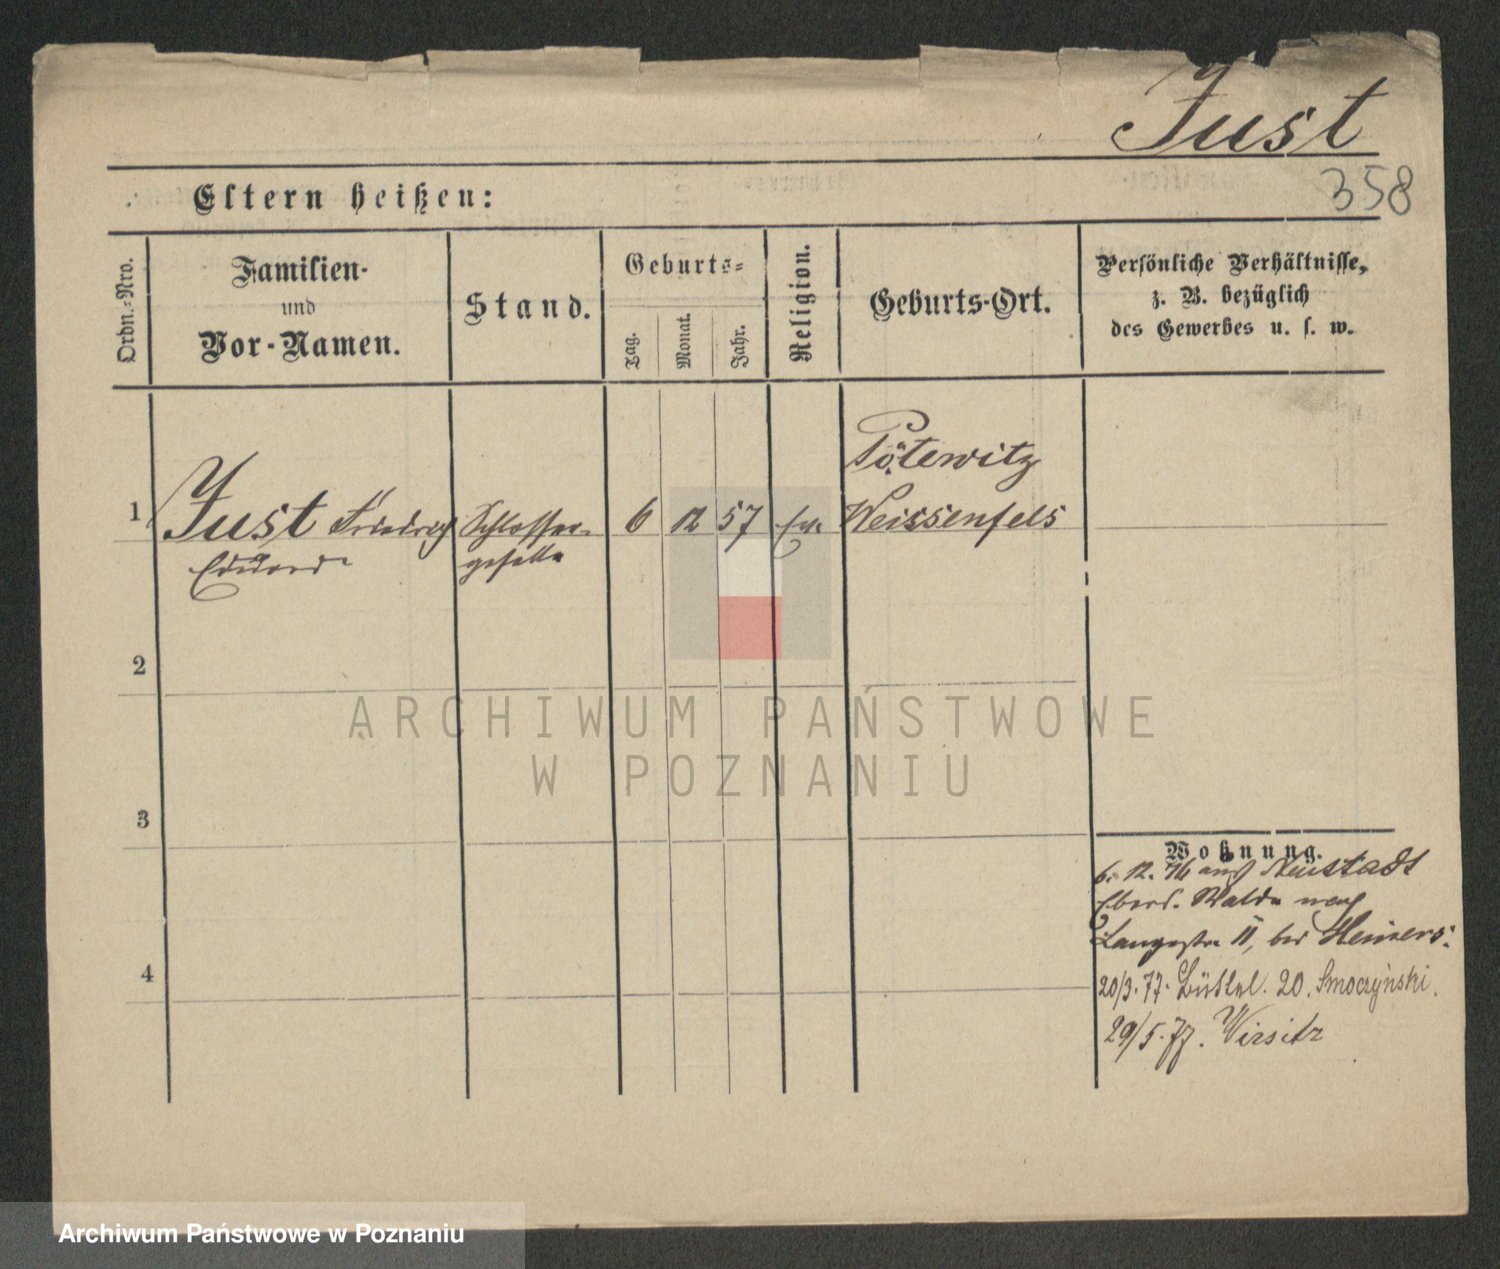 Just
358
Eltern heißen:
Ordn.-Nro.
Familien-
und
Vor-Namen.
Stand.
Geburts-
Tag.
Monat.
Jahr.
Religion.
Geburts-Ort.
Persönliche Verhältnisse,
z. B. bezüglich
des Gewerbes u. s. w.
1
Just Friedrich
Eduard
Schlosser-
geselle
6
12
57
Ev.
Pötewitz
Weissenfels
2
3
4
Wohnung.
6. 12. 76 aus Neustadt
Ebersw. Walde nach
Langestr. 11, bei
20/3. 77. Büttel. 20. Smoczyński.
29/5. 77. Wirsitz
ARCHIWUM PAŃSTWOWE
W POZNANIU
Archiwum Państwowe w Poznaniu